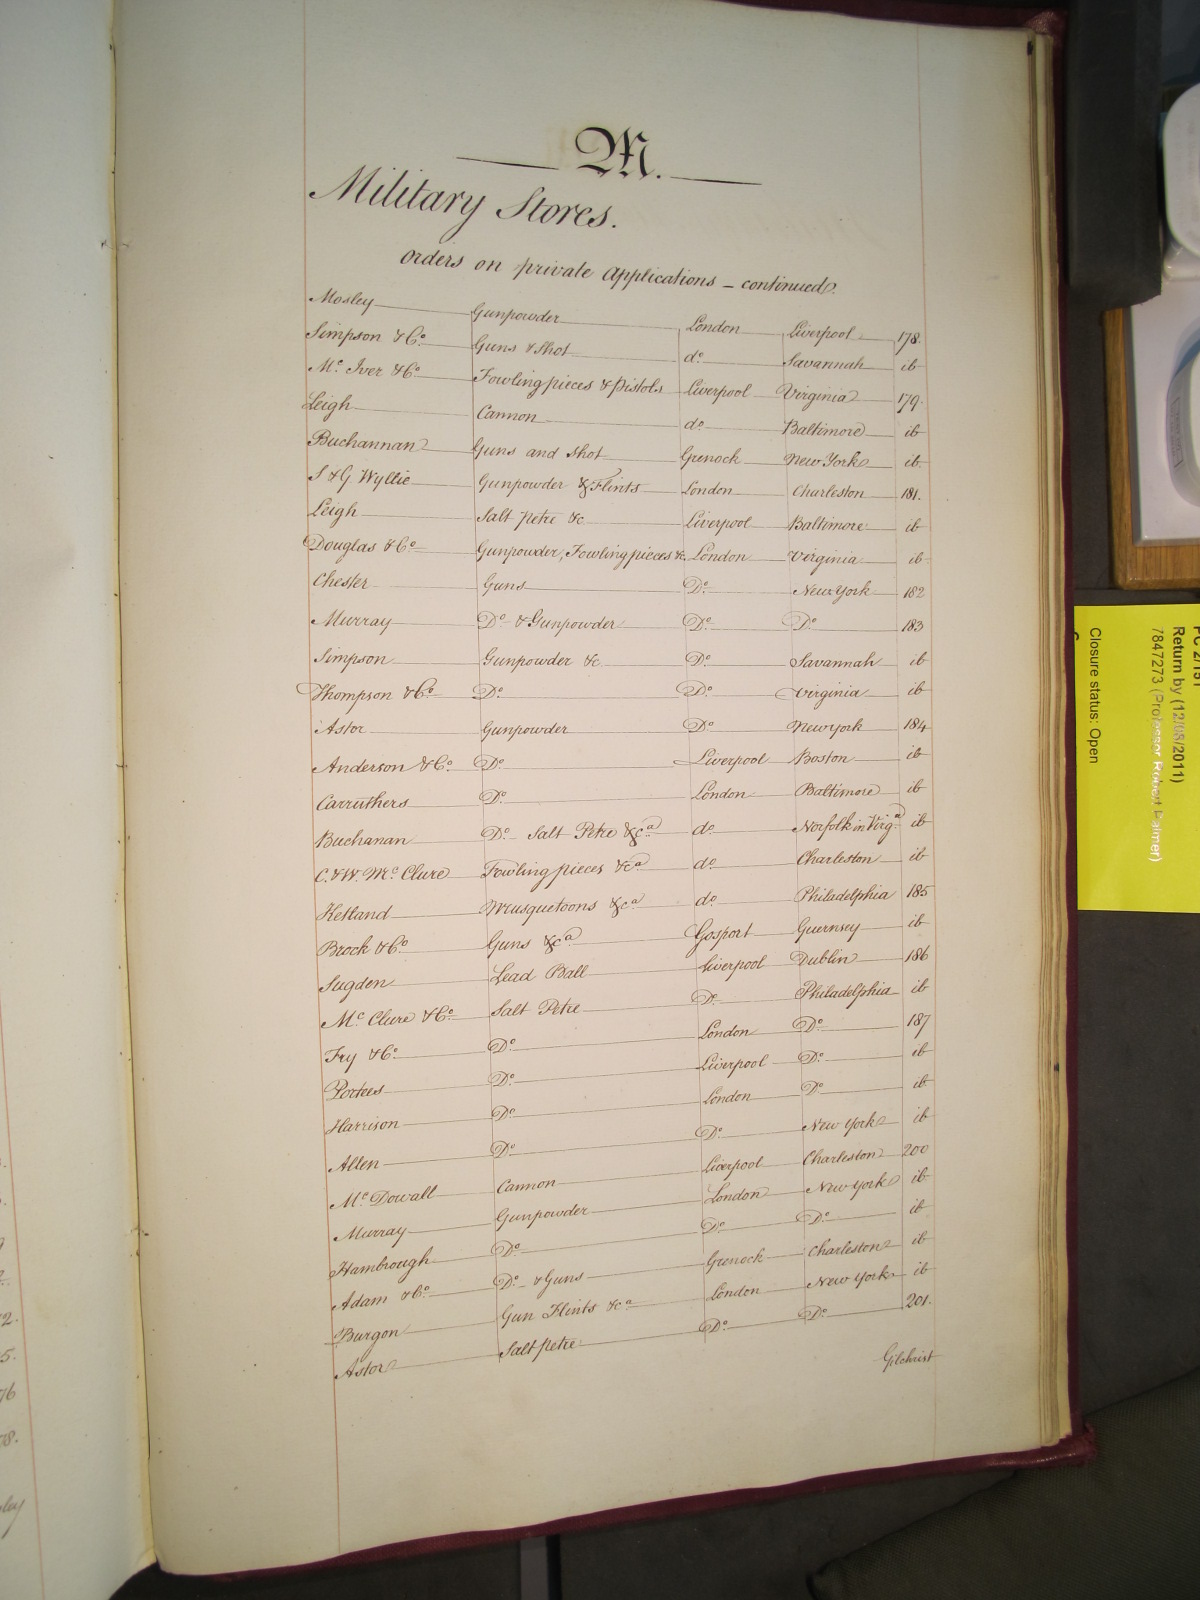 M.
Military Stores.
orders on private applications – continued.
Mosley Gunpowder London Liverpool 178.
Simpson & Co. Guns & Shot do. Savannah ib
Mc. Iver & Co Fowling pieces & Pistols Liverpool Virginia 179.
Leigh Cannon do. Baltimore ib
Buchannan Guns and Shot Grenock New York ib.
S & G Wyllie Gunpowder & Flints London Charleston 181.
Leigh Salt Petre &c Liverpool Baltimore ib
Douglas & Co Gunpowder, Fowling pieces &c. London Virginia ib
Chester Guns Do. New York 182
Murray Do. & Gunpowder Do. Do. 183
Simpson Gunpowder &c Do. Savannah ib
Thompson & Co. Do. Do. Virginia ib
Astor Gunpowder Do. New York 184
Anderson & Co. Do. Liverpool Boston ib
Carruthers Do. London Baltimore ib
Buchanan Do. Salt Petre &ca do. Norfolk in Virga ib
C. & W. Mc Clure Fowling pieces &ca do. Charleston ib
Ketland Musquetoons &ca do. Philadelphia 185
Brock & Co. Guns &ca Gosport Guernsey ib
Sugden Lead Ball Liverpool Dublin 186
Mc. Clure & Co. Salt Petre Do. Philadelphia ib
Fry & Co. Do. London Do. 187
Portees Do. Liverpool Do. ib
Harrison Do. London Do. ib
Allen Do. Do. New York ib
Mc. Dowall Cannon Liverpool Charleston 200
Murray Gunpowder London New York ib
Hambrough Do. Do. Do. ib
Adam & Co. Do. & Guns Grenock Charleston ib
Burgon Gun Flints &ca London New York ib
Astor Salt petre Do. Do. 201.
Gilchrist
Return by (12/08/2011)
7847273 (Professor Robert Palmer)
Closure status: Open
2.
5.
76
78.